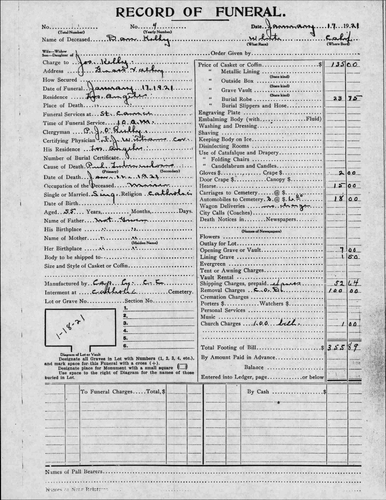 RECORD OF FUNERAL.
No. 4 Date January 17 1921
(Yearly Number)
Name of Deceased Dan Kelly White Calif
(What Race) (Where Born)
Charge to Jos. Kelly
Address
How Secured
Date of Funeral January 17, 1921
Residence Los Angeles
Place of Death
Funeral Services at St. Camir
Time of Funeral Service 10 A.M.
Clergyman P. J. O'Reilly
Certifying Physician
His Residence Los Angeles
Number of Burial Certificate
Cause of Death Pul. Tuberculosis
(Primary) (Secondary)
Date of Death Jan. 14, 1921
Occupation of the Deceased
Single or Married Sing. Religion Catholic
Date of Birth
Aged 55 Years Months Days
Name of Father Not Given
His Birthplace "
Name of Mother "
(Maiden Name)
Her Birthplace "
Body to be shipped to
Size and Style of Casket or Coffin
Manufactured by Cap. Cy. C. Co
Interment at Catholic Cemetery.
Lot or Grave No. Section No.
1.
2.
3.
4.
5.
6.
1-18-21
Diagram of Lot or Vault
Designate all Graves in Lot with Numbers (1, 2, 3, 4, etc.), and mark space for this Funeral with a cross (+).
Designate place for Monument with a small square
Use space to the right of Diagram for the names of those buried in Lot.
Order Given by
Price of Casket or Coffin 135 00
(State kind)
" Metallic Lining
(State kind)
" Outside Box
(State kind)
" Grave Vault
(State kind)
" Burial Robe 23 75
(State kind)
" Burial Slippers and Hose
Engraving Plate
Embalming Body (with Fluid)
(Name of)
Washing and Dressing
Shaving
Keeping Body on Ice
Disinfecting Rooms
Use of Catafalque and Drapery
" Folding Chairs
" Candelabrum and Candles
Gloves $ Crape $ 2 00
Door Crape $ Canopy $
Hearse 15 00
Carriages to Cemetery @ $
Automobiles to Cemetery 3 @ $ 6.00 18 00
Wagon Deliveries
City Calls (Coaches)
Death Notices in Newspapers
(Names of Newspapers)
Flowers
Outlay for Lot
Opening Grave or Vault 7 00
Lining Grave 1 50
Evergreen
Tent or Awning Charges
Vault Rental
Shipping Charges, prepaid express 52 64
Removal Charges C.O.D. 100 00
Cremation Charges
Porters $ Watchers $
Personal Services
Music
Church Charges 1.00 bill 1 00
Total Footing of Bill $ 355 89
By Amount Paid in Advance
Balance
Entered into Ledger, page or below.
To Funeral Charges Total $
By Cash $
Names of Pall Bearers